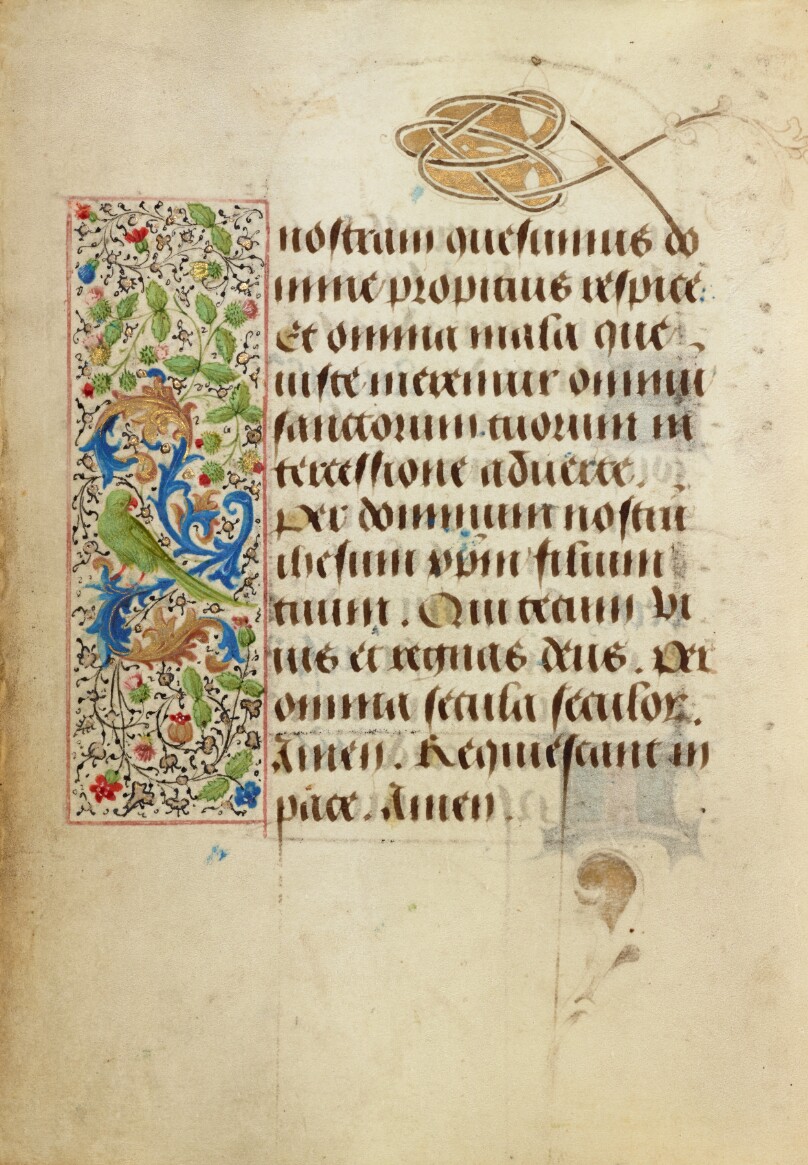 nostram quesumus do
mine propicius respice.
Et omnia mala que
iuste meremur omniū
sanctorum tuorum in
tercessione aduerte.
Per dominum nostrū
ihesum xp̄m filium
tuum. Qui tecum vi
uis et regnas deus. Per
omnia secula seculoꝝ.
Amen. Requiescant in
pace. Amen.